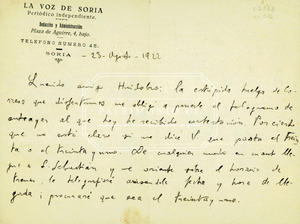 LA VOZ DE SORIA
Periódico independiente.
Redacción y Administración:
Plaza de Aguirre, 4, bajo.
TELEFONO NUMERO 45.
SORIA
23 - Agosto - 1922
Querido amigo Huidobro: la estúpida huelga de co-
rreos que disfrutamos me obligó a ponerle el telegrama de
anteayer al que hoy he recibido contestación. Por cierto
que no está claro si me dice V. que pasta el trein-
ta o el treinta y uno. De cualquier modo en cuanto lle-
gue a S. Sebastián y se oriente sobre el horario de
trenes, le telegrafiaré avisándole fecha y hora de lle-
gada; procuraré que sea el treinta y uno.